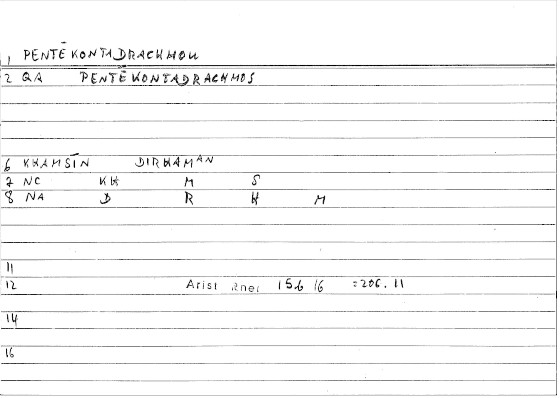 1 PENTĒKONTADRACHMOU
2 QA PENTĒKONTADRACHMOS
6 KHAMSĪN DIRHAMAN
7 NC KH M S
8 NA D R H M
11
12 Arist Rhet 15b 16 =206.11
14
16